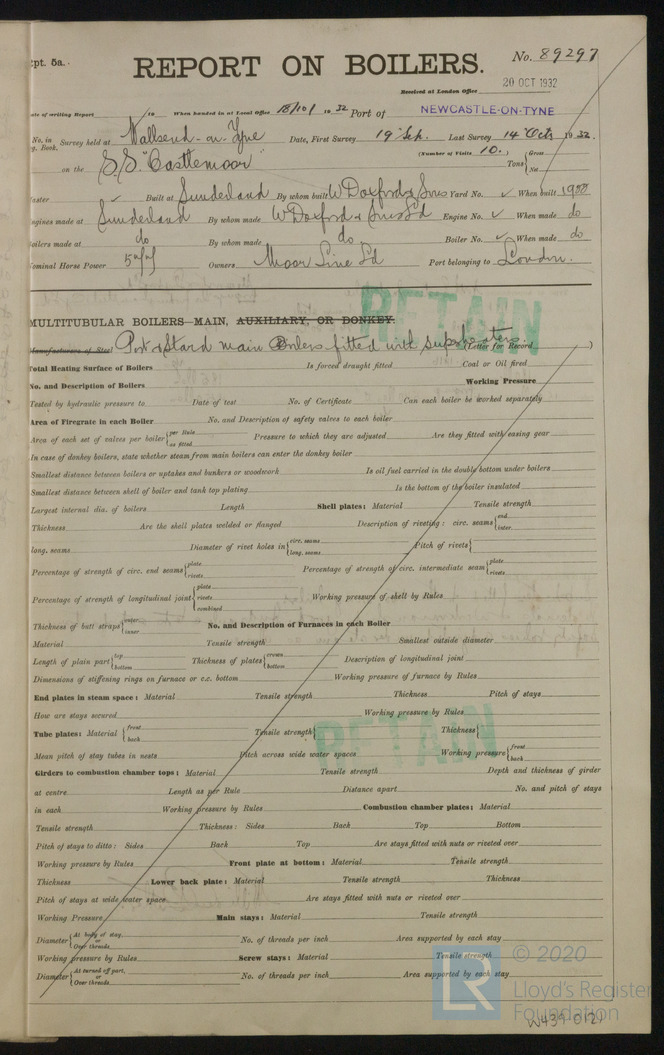 Rpt. 5a.
REPORT ON BOILERS.
No. 89297
20 OCT 1932
Received at London Office
Date of writing Report 19 When handed in at Local Office 18/10/ 19 32 Port of NEWCASTLE-ON-TYNE
No. in Reg. Book. Survey held at Wallsend-on-Tyne Date, First Survey 19 Sep. Last Survey 14 Octr 1932.
(Number of Visits 10.)
on the S.S. "Castlemoor" Tons { Gross Net
Master Built at Sunderland By whom built W Doxford & Sons Yard No. ✓ When built
Engines made at Sunderland By whom made W Doxford & Sons Ld Engine No. ✓ When made do
Boilers made at do By whom made do Boiler No. ✓ When made do
Nominal Horse Power Owners Moor Line Ld Port belonging to London.
RETAIN
MULTITUBULAR BOILERS—MAIN, AUXILIARY, OR DONKEY.
Manufacturers of Steel Port & Starbd main Boilers fitted with superheaters. (Letter for Record )
Total Heating Surface of Boilers Is forced draught fitted Coal or Oil fired
No. and Description of Boilers Working Pressure
Tested by hydraulic pressure to Date of test No. of Certificate Can each boiler be worked separately
Area of Firegrate in each Boiler No. and Description of safety valves to each boiler
Area of each set of valves per boiler { per Rule as fitted Pressure to which they are adjusted Are they fitted with easing gear
In case of donkey boilers, state whether steam from main boilers can enter the donkey boiler
Smallest distance between boilers or uptakes and bunkers or woodwork Is oil fuel carried in the double bottom under boilers
Smallest distance between shell of boiler and tank top plating Is the bottom of the boiler insulated
Largest internal dia. of boilers Length Shell plates: Material Tensile strength
Thickness Are the shell plates welded or flanged Description of riveting: circ. seams { end inter.
long. seams Diameter of rivet holes in { circ. seams long. seams Pitch of rivets {
Percentage of strength of circ. end seams { plate rivets Percentage of strength of circ. intermediate seam { plate rivets
Percentage of strength of longitudinal joint { plate rivets combined Working pressure of shell by Rules
Thickness of butt straps { outer inner No. and Description of Furnaces in each Boiler
Material Tensile strength Smallest outside diameter
Length of plain part { top bottom Thickness of plates { crown bottom Description of longitudinal joint
Dimensions of stiffening rings on furnace or c.c. bottom Working pressure of furnace by Rules
End plates in steam space: Material Tensile strength Thickness Pitch of stays
How are stays secured Working pressure by Rules
RETAIN
Tube plates: Material { front back Tensile strength { Thickness {
Mean pitch of stay tubes in nests Pitch across wide water spaces Working pressure { front back
Girders to combustion chamber tops: Material Tensile strength Depth and thickness of girder
at centre Length as per Rule Distance apart No. and pitch of stays
in each Working pressure by Rules Combustion chamber plates: Material
Tensile strength Thickness: Sides Back Top Bottom
Pitch of stays to ditto: Sides Back Top Are stays fitted with nuts or riveted over
Working pressure by Rules Front plate at bottom: Material Tensile strength
Thickness Lower back plate: Material Tensile strength Thickness
Pitch of stays at wide water space Are stays fitted with nuts or riveted over
Working Pressure Main stays: Material Tensile strength
Diameter { At body of stay, or Over threads No. of threads per inch Area supported by each stay
Working pressure by Rules Screw stays: Material Tensile strength
Diameter { At turned off part, or Over threads No. of threads per inch Area supported by each stay
© 2020
LR
Lloyd's Register
Foundation
W439-0121